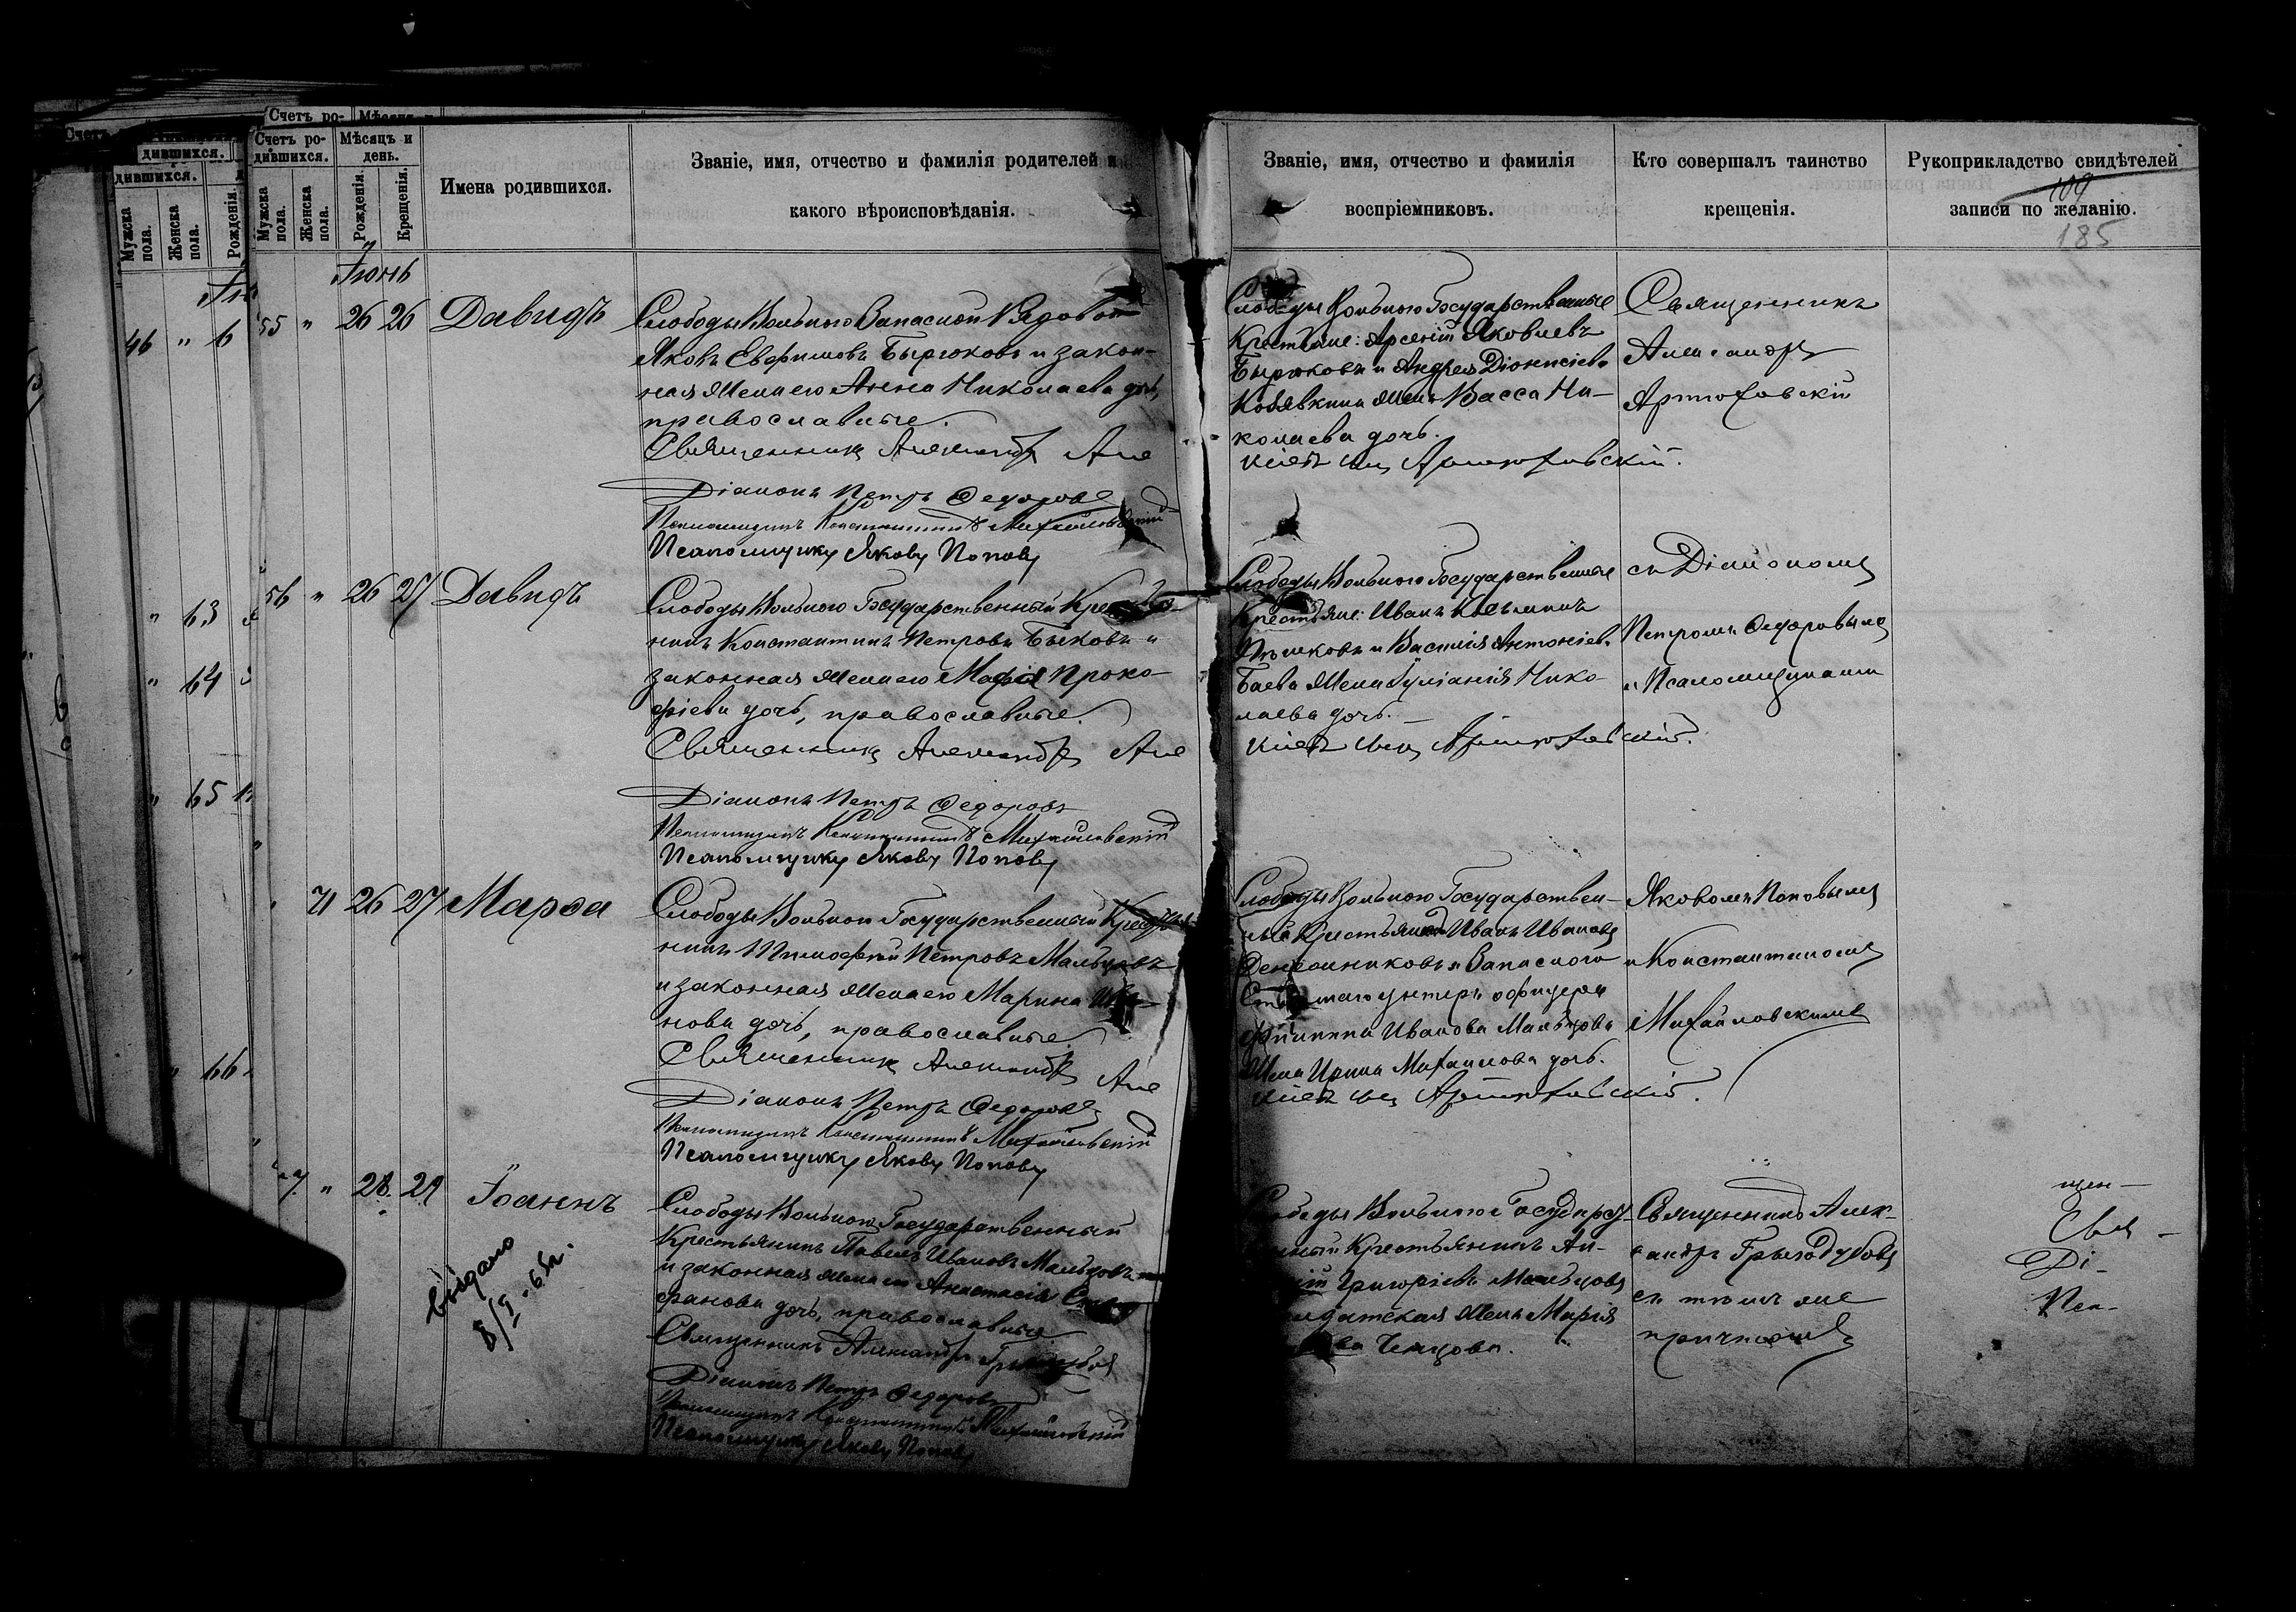 Счетъ родившихся.
Мѣсяцъ и день.
Мужска пола.
Женска пола.
Рожденія.
Крещенія.
Имена родившихся.
Званіе, имя, отчество и фамилія родителей и
какого вѣроисповѣданія.
Званіе, имя, отчество и фамилія
воспріемниковъ.
Кто совершалъ таинство
крещенія.
Рукоприкладство свидѣтелей
записи по желанію.
109
185
Іюнь
46 " 6
" 63
" 64
" 65
66
55 " 26 26 Давидъ
Слободы Вольного Запасной Рядовой
Яковъ Евфимовъ Бирюковъ и закон-
ная жена его Анна Николаева дочь,
православные.
Священникъ Александръ
Діаконъ Петръ Федоровъ
Псаломщикъ Константинъ Михайловскій
Псаломщикъ Яковъ Поповъ
Слободы Вольного Государственные
Крестьяне: Арсеній Яковлевъ
Бирюковъ и Андрея Діонисіева
Кобявкина жена Васса Ни-
колаева дочь.
Артюховскій.
Священникъ
Александръ
Артюховскій
56 " 26 27 Давидъ
Слободы Вольного Государственный Крестья-
нинъ Константинъ Петровъ Быковъ и
законная жена его Марія Проко-
фіева дочь, православные.
Священникъ Александръ
Діаконъ Петръ Федоровъ
Псаломщикъ Константинъ Михайловскій
Псаломщикъ Яковъ Поповъ
Слободы Вольного Государственные
Крестьяне: Иванъ
и Василія Антоніева
Баева жена Іуліанія Нико-
лаева дочь.
Артюховскій.
съ Діакономъ
Петромъ Федоровымъ
и Псаломщиками
71 26 27 Марѳа
Слободы Вольного Государственный Крестья-
нинъ Тимофей Петровъ Мальцовъ
и законная жена его Марина Ива-
нова дочь, православные.
Священникъ Александръ
Діаконъ Петръ Федоровъ
Псаломщикъ Константинъ Михайловскій
Псаломщикъ Яковъ Поповъ
Слободы Вольного Государствен-
ный Крестьянинъ Иванъ Ивановъ
и Запасного
унтеръ офицера
Филиппа Иванова Мальцова
жена Ирина Михайлова дочь.
Артюховскій.
Яковомъ Поповымъ
и Константиномъ
Михайловскимъ
" 28 29 Іоаннъ
выдано
Слободы Вольного Государственный
Крестьянинъ Павелъ Ивановъ Мальцовъ
и законная жена его Анастасія
фанова дочь, православные
Священникъ Александръ
Діаконъ Петръ Федоровъ
Псаломщикъ Константинъ Михайловскій
Псаломщикъ Яковъ Поповъ
Вольного Государст-
Крестьянинъ
Григоріевъ Мальцовъ
жена Марія
Священникъ Алек-
сандръ Грызодубовъ
съ тѣмъ же
причтомъ
щен-
Свя-
Ді-
Пса-